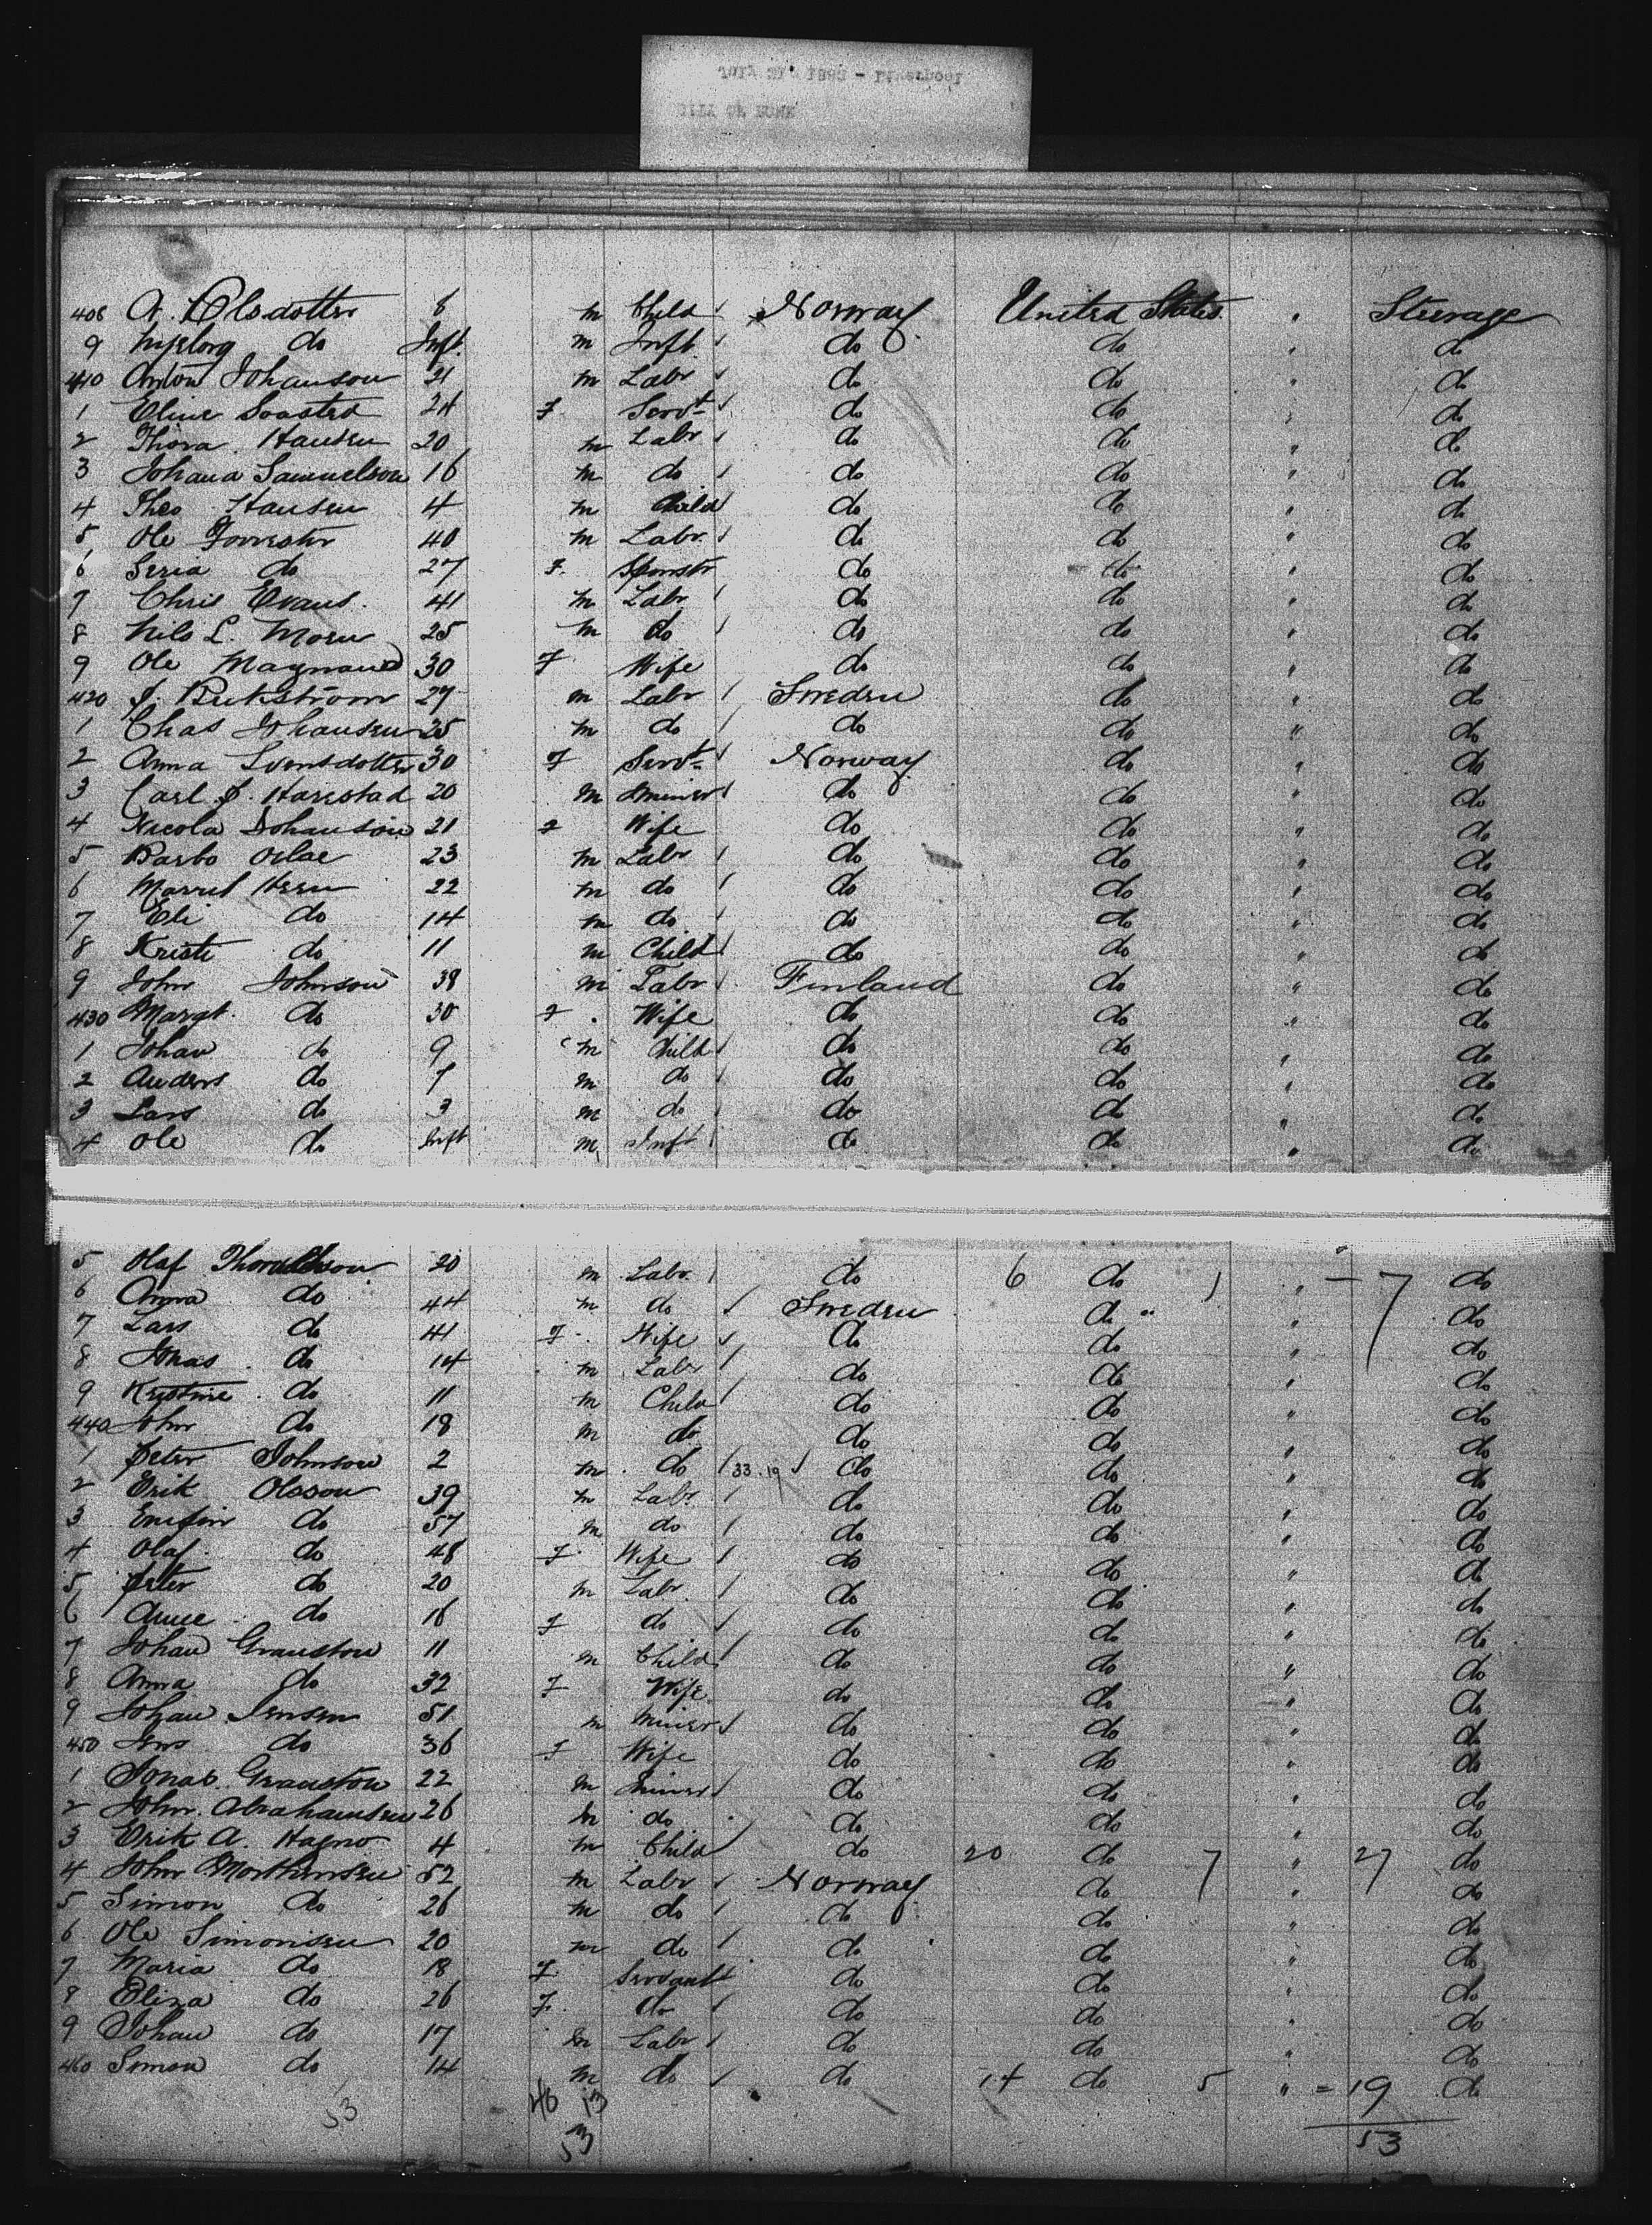 408 A. Olsdotter 6 m Child Norway United States " Steerage
9 do Inft. m Inft. do do " do
410 Anton Johanson 21 m Labr do do " do
1 Eline 24 F Servt do do " do
2 Thora Hansen 20 m Labr do do " do
3 Johana Samuelson 16 m do do do " do
4 Theo Hansen 4 m Child do do " do
5 Ole Forrester 40 m Labr. do do " do
6 Seria do 27 F. Spinstr do do " do
7 Chris Evans. 41 m Labr do do " do
8 Nils L. Moen 25 m do do do " do
9 Ole Magnand 30 F Wife do do " do
420 J. 27 m Labr Sweden do " do
1 Chas Johansen 25 m do do do " do
2 Anna Svensdotter 30 F Servt Norway do " do
3 Carl J. Harestad 20 m miner do do " do
4 Nicola Johanson 21 F Wife do do " do
5 Barbo 23 m Labr do do " do
6 22 m do do do " do
7 Eli do 14 m do do do " do
8 Kristi do 11 m Child do do " do
9 John Johnson 38 m Labr Finland do " do
430 Margt. do 30 F Wife do do " do
1 Johan do 9 m Child do do " do
2 Anders do 7 m do do do " do
3 Lars do 3 m do do do " do
4 Ole do Inft m Inft do do " do
5 Olaf Thoraldson 20 m Labr. do 6 do 1 " - 7 do
6 Anna do 44 m do Sweden do " do
7 Lars do 41 F Wife do do " do
8 Jonas do 14 m Labr do do " do
9 Kristine do 11 m Child do do " do
440 John do 18 m do do do " do
1 Peter Johnson 2 m do 33.19 do do " do
2 Erik Olsson 39 m Labr. do do " do
3 do 57 m do do do " do
4 Olaf do 48 F Wife do do " do
5 Peter do 20 m Labr. do do " do
6 do 16 F do do do " do
7 Johan Granston 11 m Child do do " do
8 Anna do 32 F Wife do do " do
9 Johan Jensen 51 m Miner do do " do
450 Jens do 36 F Wife do do " do
1 Jonas Granston 22 m Miner do do " do
2 John. Abrahamsen 26 m do do do " do
3 Erik A. Hagno 4 m Child do 20 do 7 " 27 do
4 John Morthensen 52 m Labr Norway do " do
5 Simon do 26 m do do do " do
6 Ole Simonsen 20 m do do do " do
7 Maria do 18 F. Servant do do " do
8 Eliza do 26 F. do do do " do
9 Johan do 17 m Labr do do " do
460 Simon do 14 m do do 14 do 5 " = 19 do
53 40 13 53
53